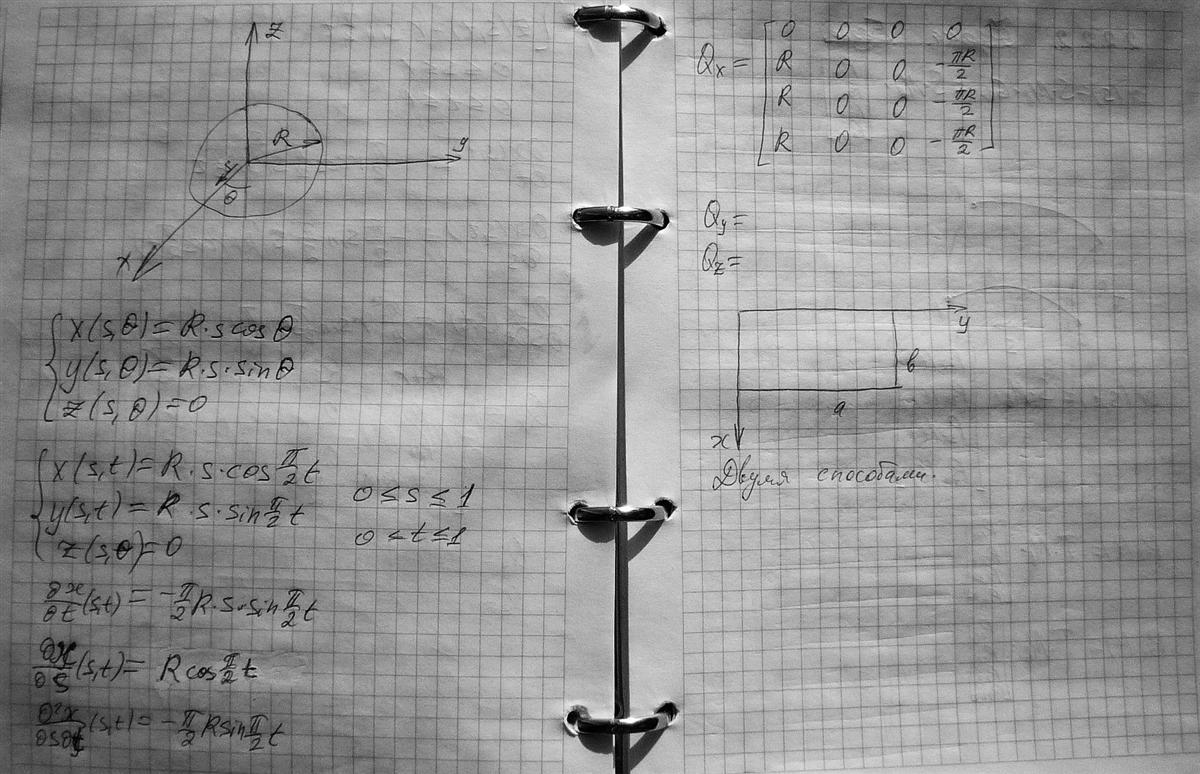 z
R
y
s
θ
x
{ x(s,θ) = R·s cosθ
y(s,θ) = R·s·sinθ
z(s,θ) = 0
{ x(s,t) = R·s·cos π/2 t
y(s,t) = R·s·sin π/2 t
z(s,θ) = 0
0 ≤ s ≤ 1
0 < t ≤ 1
∂x/∂t (s,t) = -π/2 R·s·sin π/2 t
∂x/∂s (s,t) = R cos π/2 t
∂²x/∂s∂t (s,t) = -π/2 R sin π/2 t
Qx = [ 0 0 0 0
R 0 0 -πR/2
R 0 0 -πR/2
R 0 0 -πR/2 ]
Qy =
Qz =
y
в
a
x
Двумя способами.